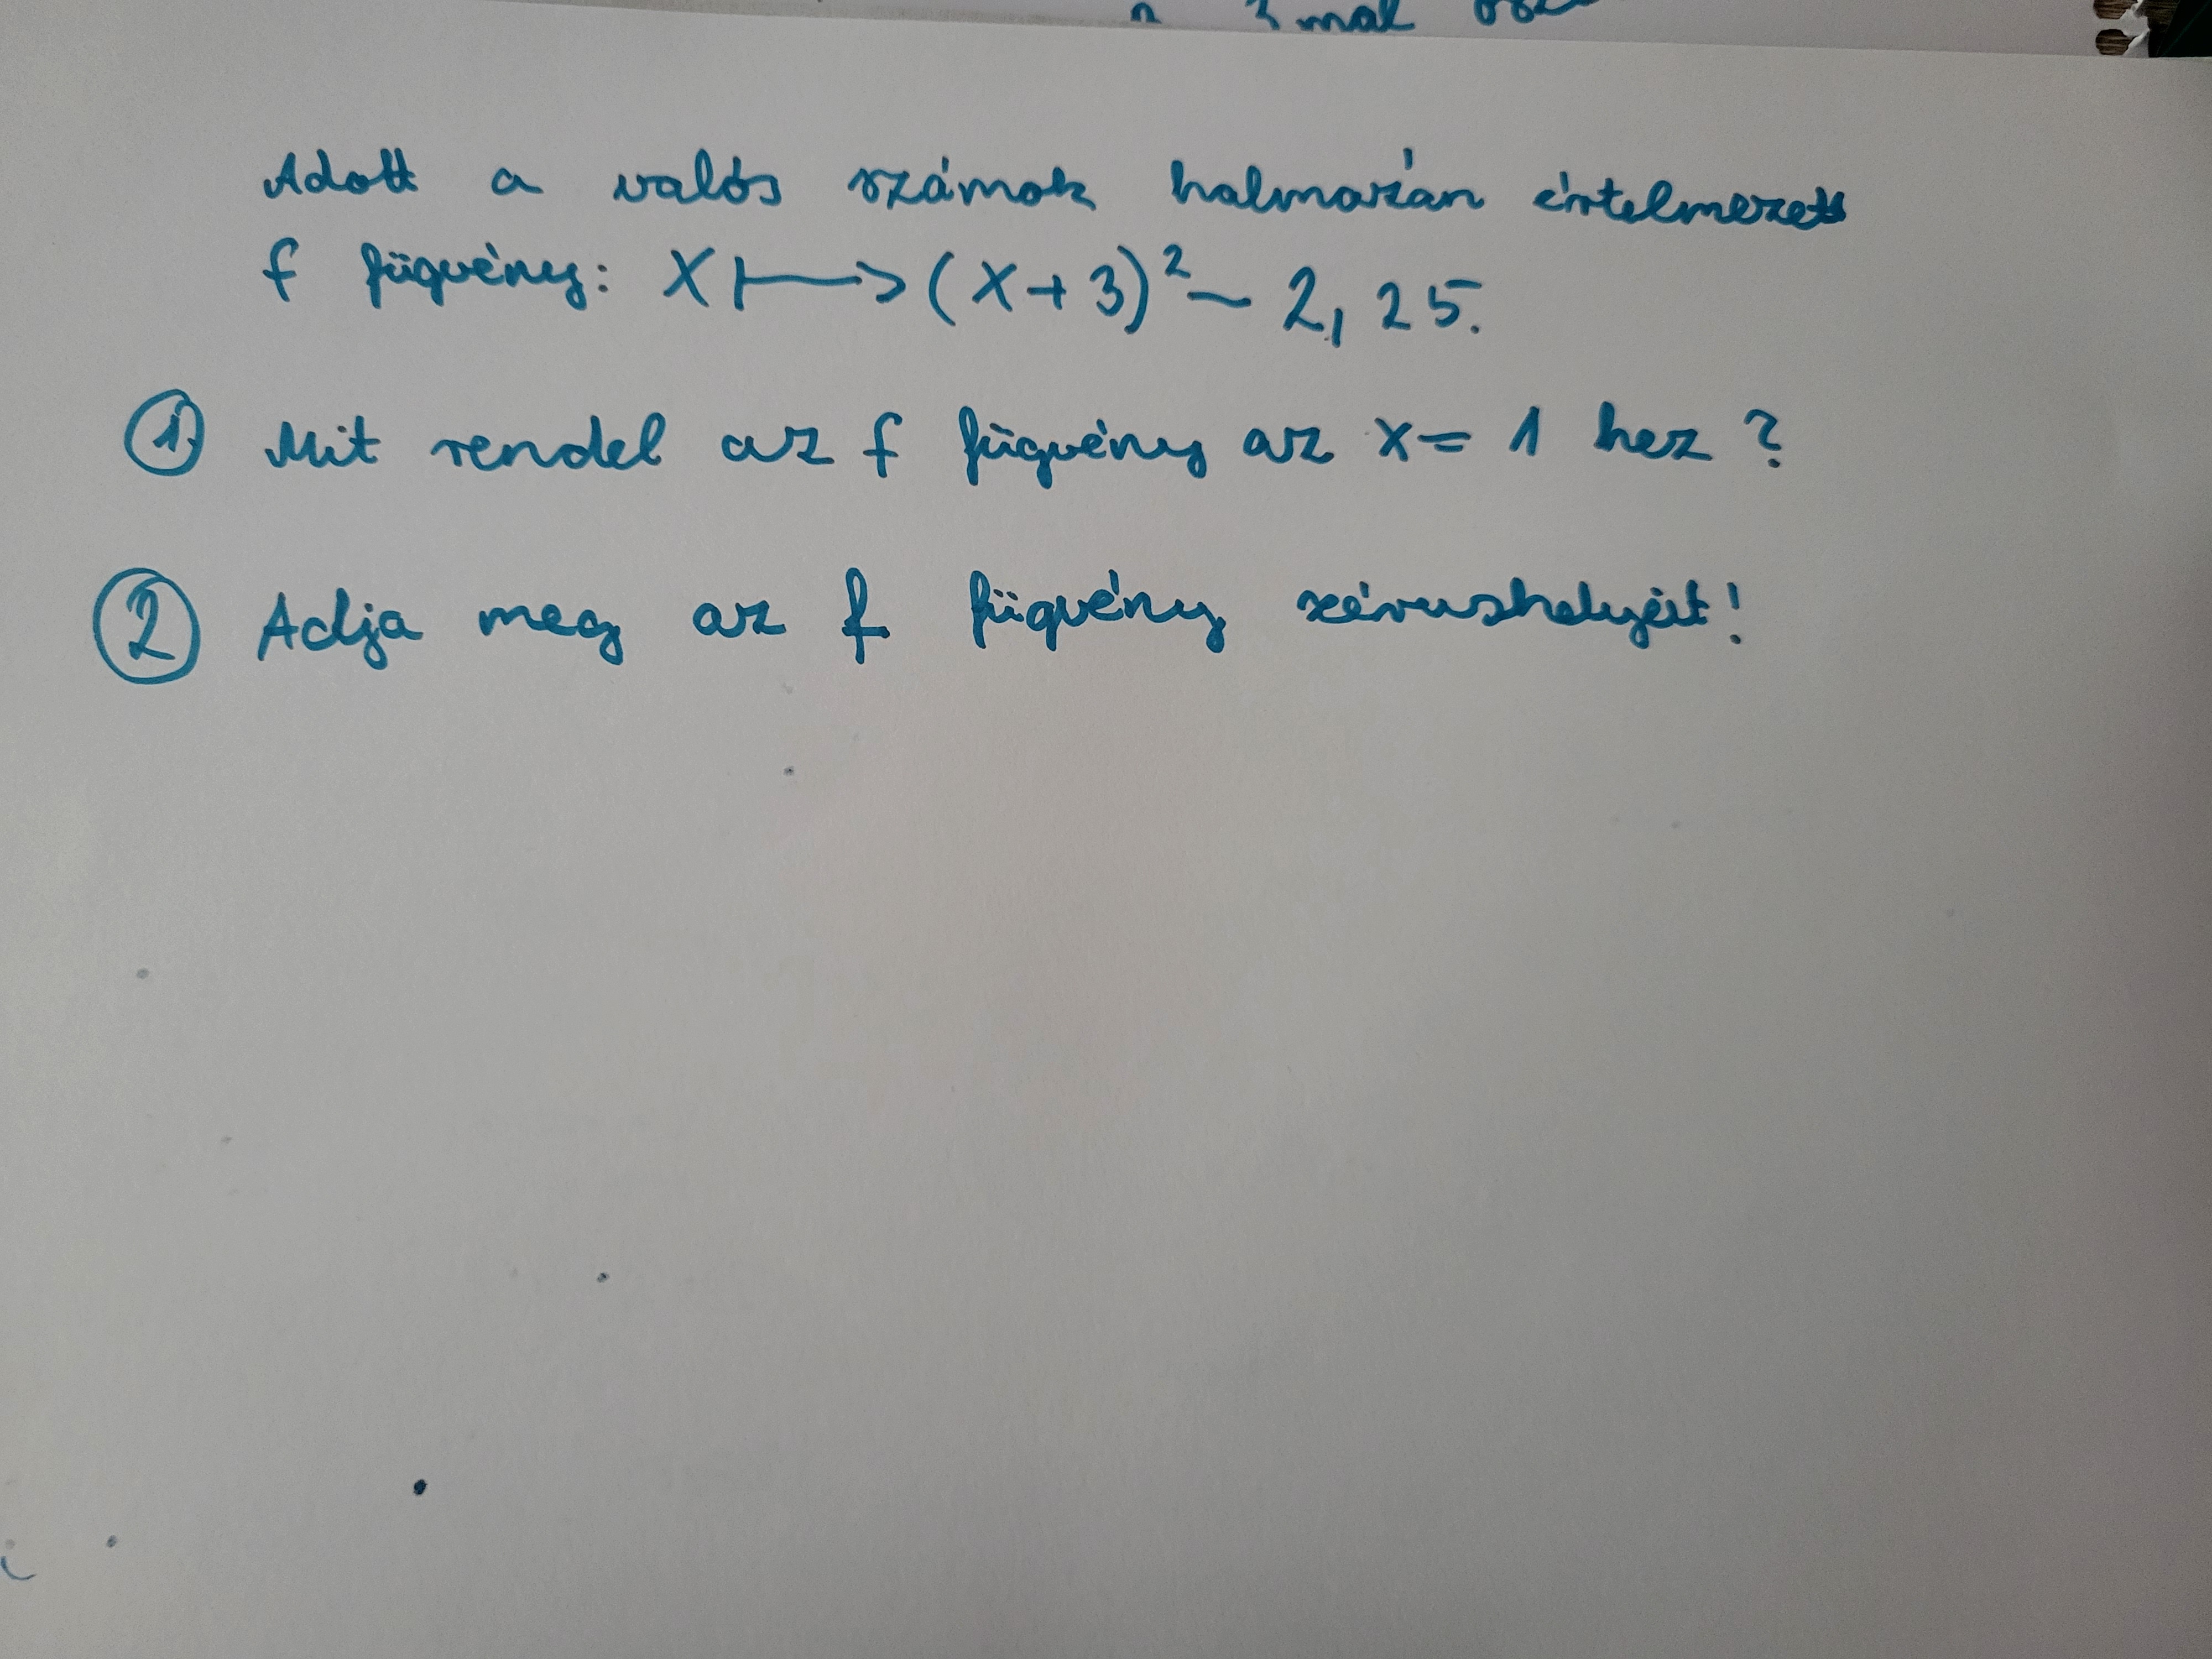 3 mal
Adott a valós számok halmazán értelmezett
f fügvény: x ↦ (x+3)² - 2,25.
① Mit rendel az f fügvény az x = 1 hez ?
② Adja meg az f fügvény zérushelyeit!